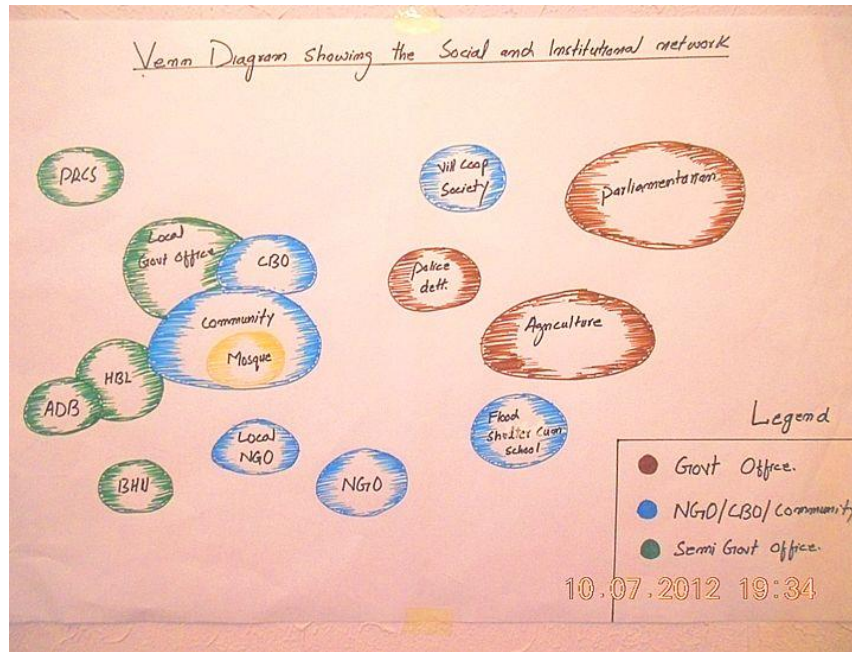 Venn Diagram showing the Social and Institutional network
PRCS
Vill Coop
Society
Parliamentarian
Local
Govt Office
CBO
Police
dett.
Community
Mosque
Agriculture
HBL
ADB
Flood
Shelter Cum
School
Local
NGO
NGO
BHU
Legend
Govt Office.
NGO/CBO/Community
Semi Govt Office.
10.07.2012 19:34